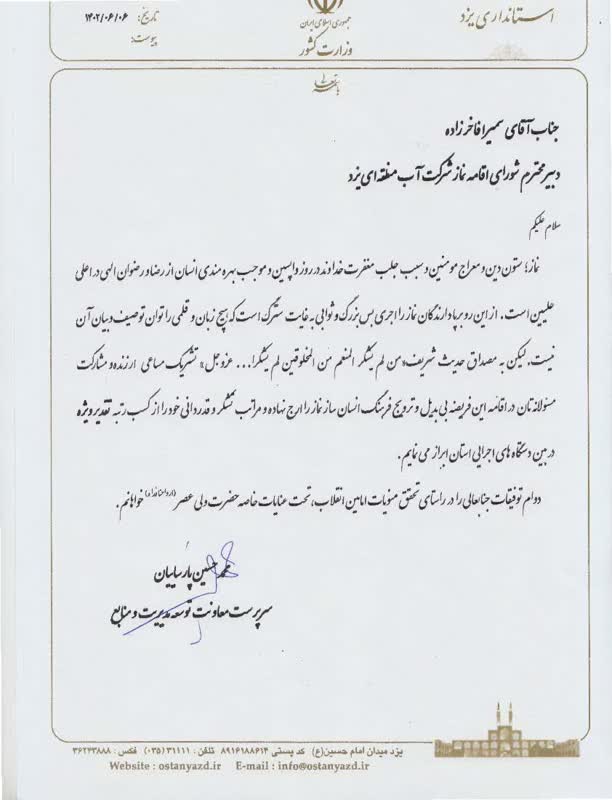 استانداری یزد
جمهوری اسلامی ایران
وزارت کشور
تاریخ: ۱۴۰۲/۰۶/۰۶
پیوست:
باسمه تعالی
جناب آقای سمیرا فاخرزاده
دبیر محترم شورای اقامه نماز شرکت آب منطقه ای یزد
سلام علیکم
نماز؛ ستون دین و معراج مومنین و سبب جلب مغفرت خداوند در روز واپسین و موجب بهره مندی انسان از رضا و رضوان الهی در اعلی
علیین است. از این رو برپادارندگان نماز را اجری بس بزرگ و ثوابی به غایت سترگ است که هیچ زبان و قلمی را توان توصیف و بیان آن
نیست. لیکن به مصداق حدیث شریف «من لم یشکر المنعم من المخلوقین لم یشکرا... عزوجل» تشریک مساعی ارزنده و مشارکت
مسئولانه تان در اقامه این فریضه بی بدیل و ترویج فرهنگ انسان ساز نماز را ارج نهاده و مراتب تشکر و قدردانی خود را از کسب رتبه تقدیر ویژه
در بین دستگاه های اجرایی استان ابراز می نمایم.
دوام توفیقات جنابعالی را در راستای تحقق منویات امامین انقلاب، تحت عنایات خاصه حضرت ولی عصر (ارواحنا فداه) خواهانم.
محمد حسین پارساییان
سرپرست معاونت توسعه مدیریت و منابع
یزد میدان امام حسین(ع) کد پستی ۸۹۱۶۱۸۸۶۱۴ تلفن: ۳۱۱۱۱(۰۳۵) فکس: ۳۶۲۴۳۸۸۸
Website : ostanyazd.ir E-mail : info@ostanyazd.ir